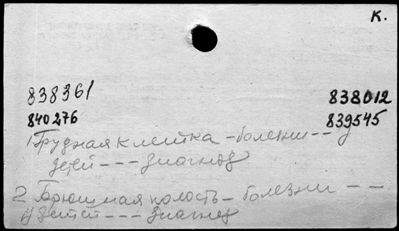 К.
838361 838012
840276 839545
1) Грудная клетка - болезни -- у
детей --- диагноз
2 Брюшная полость - болезни --
у детей --- диагноз